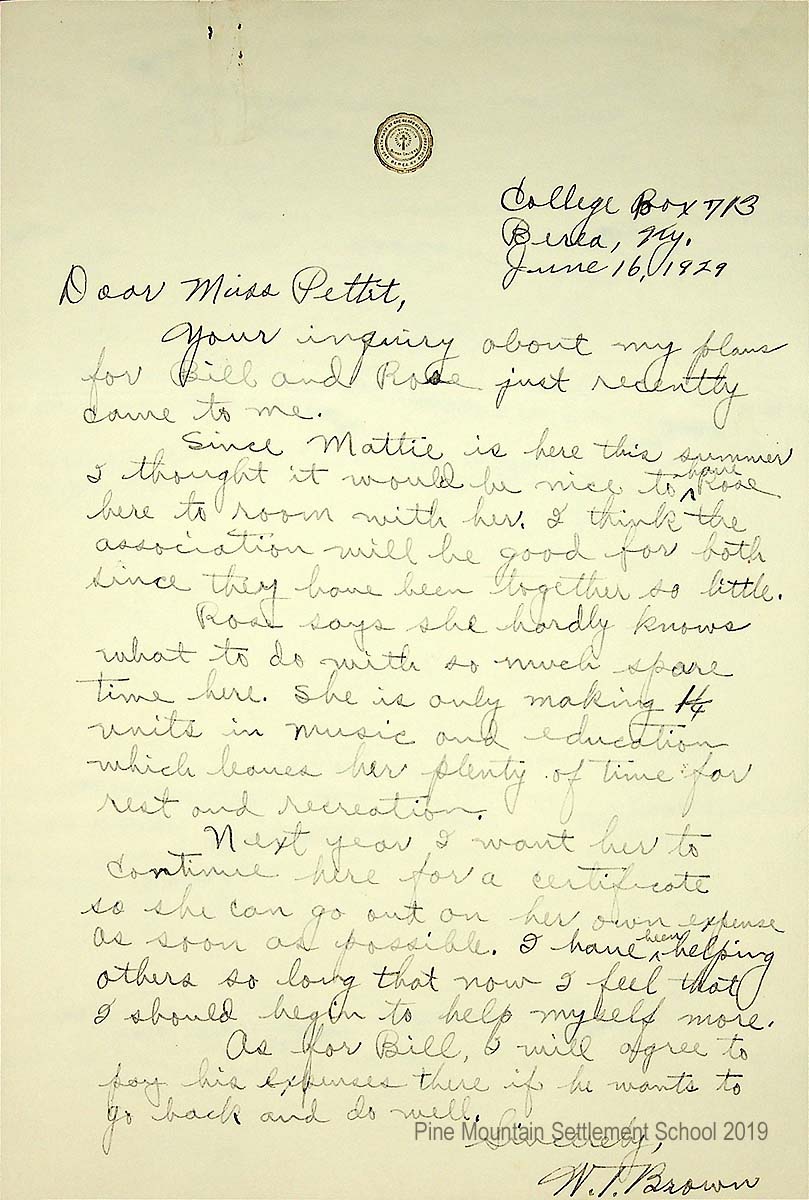 College Box 713
Berea, Ky.
June 16, 1929
Dear Miss Pettit,
Your inquiry about my plans
for Bill and Rose just recently
came to me.
Since Mattie is here this summer
I thought it would be nice to have Rose
here to room with her. I think the
association will be good for both
since they have been together so little.
Rose says she hardly knows
what to do with so much spare
time here. She is only making 1¼
units in music and education
which leaves her plenty of time for
rest and recreation.
Next year I want her to
continue here for a certificate
so she can go out on her own expense
as soon as possible. I have been helping
others so long that now I feel that
I should begin to help myself more.
As for Bill, I will agree to
pay his expenses there if he wants to
go back and do well.
Sincerely,
Pine Mountain Settlement School 2019
W. T. Brown